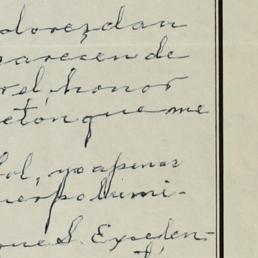 dolorez dan
parecen de
r el honor
tón que me
sol, no apenas
uerpo humi-
que S. Exceden-